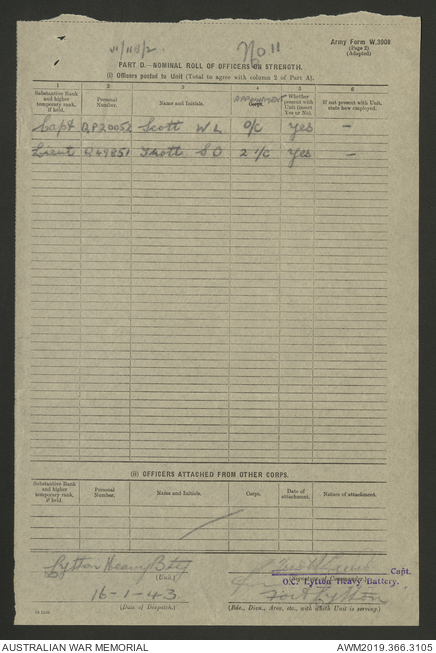 Army Form W.3008
(Page 2)
(Adapted)
No 11
PART D.—NOMINAL ROLL OF OFFICERS ON STRENGTH.
(i) Officers posted to Unit (Total to agree with column 2 of Part A).
1 2 3 4 5 6
Substantive Rank and higher temporary rank, if held. Personal Number. Name and Initials. Appointment Corps. Whether present with Unit (insert Yes or No). If not present with Unit, state how employed.
Capt QP20052 Scott W L O/C Yes —
Lieut Q49851 Trott S O 2 I/C Yes —
(ii) OFFICERS ATTACHED FROM OTHER CORPS.
Substantive Rank and higher temporary rank, if held. Personal Number. Name and Initials. Corps. Date of attachment. Nature of attachment.
Lytton Heavy Bty
(Unit.)
Capt.
(Signature of Commander.)
O.C. Lytton Heavy Battery.
16-1-43
(Date of Despatch.)
Fort Lytton
(Bde., Divn., Area, etc., with which Unit is serving.)
AUSTRALIAN WAR MEMORIAL
AWM2019.366.3105